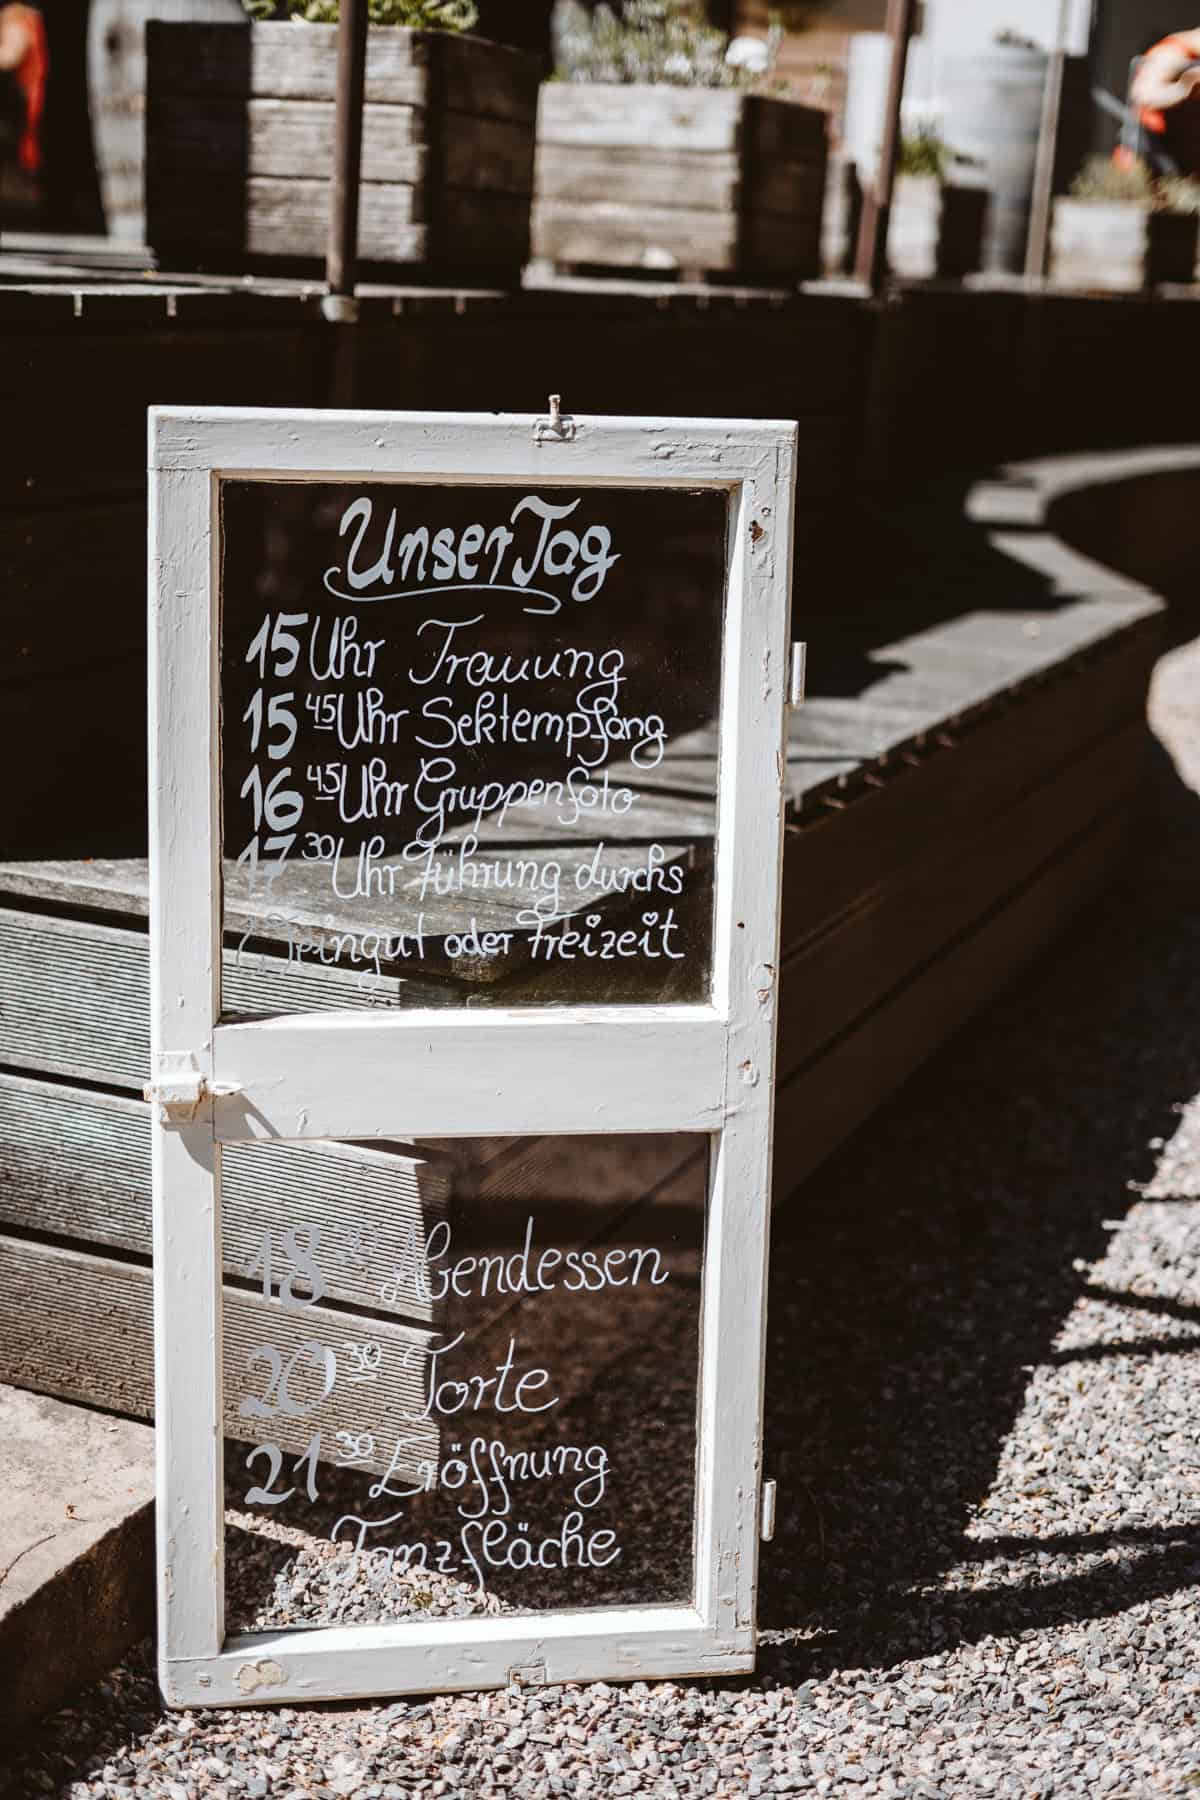 Unser Tag
15 Uhr Trauung
15 45 Uhr Sektempfang
16 45 Uhr Gruppenfoto
17 30 Uhr Führung durchs
Weingut oder Freizeit
18 30 Abendessen
20 30 Torte
21 30 Eröffnung
Tanzfläche